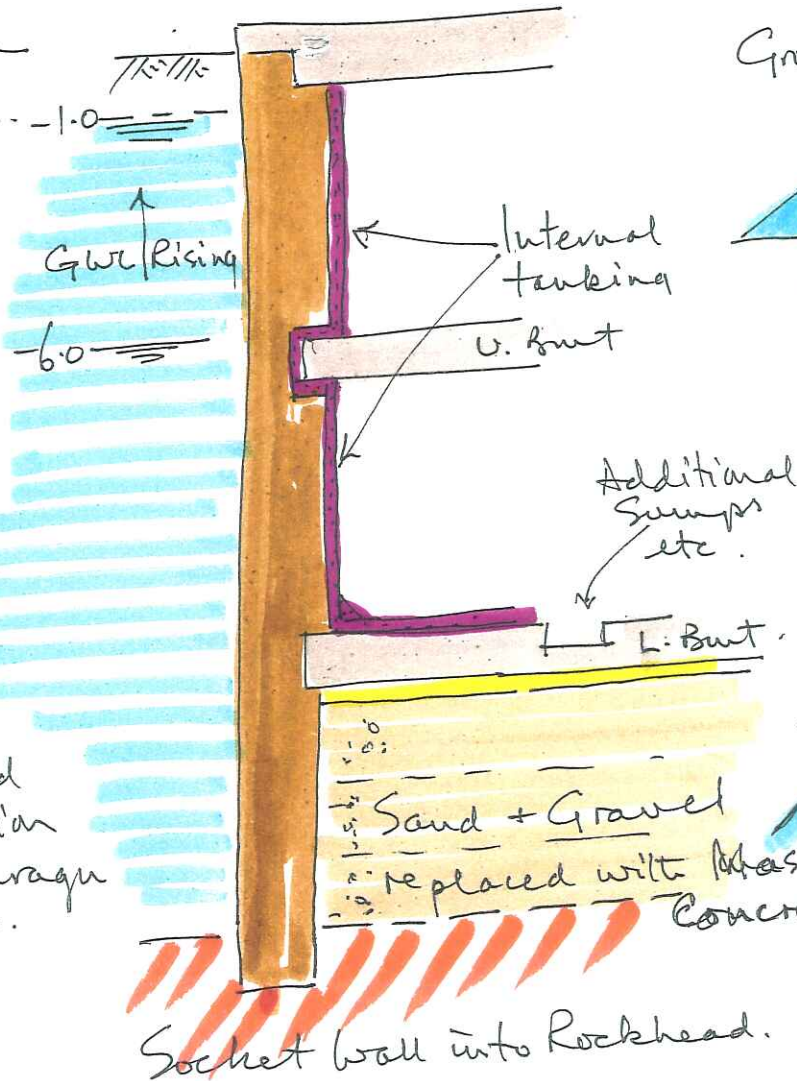 -1.0
GWL Rising
-6.0
Internal
tanking
U. Bmt
Additional
Sumps
etc.
L. Bmt.
Sand + Gravel
replaced with Mass
Concr
Socket Wall into Rockhead.